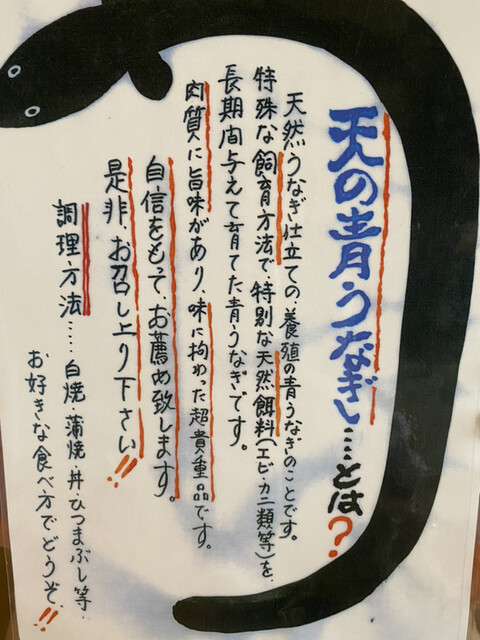 天の青うなぎ……とは?
天然うなぎ仕立ての、養殖の青うなぎのことです。
特殊な飼育方法で、特別な天然餌料(エビ・カニ類等)を
長期間与えて育てた青うなぎです。
肉質に旨味があり、味に拘わった超貴重品です。
自信をもって、お薦め致します。
是非、お召し上り下さい!!
調理方法……白焼・蒲焼・丼・ひつまぶし等、
お好きな食べ方でどうぞ、!!